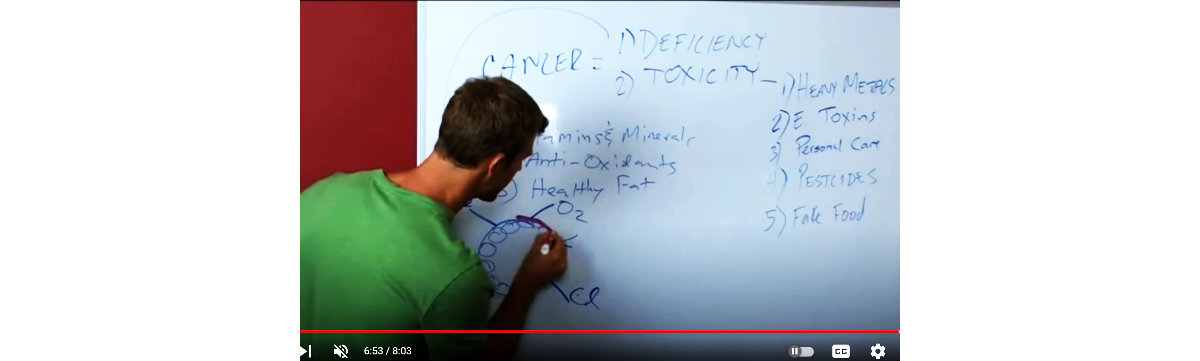 CANCER = 1) DEFICIENCY
2) TOXICITY - 1) HEAVY METALS
2) E. Toxins
3) Personal Care
4) PESTICIDES
5) Fake Food
amins & Minerals
Anti-Oxidants
3) Healthy Fat
O2
Cl
6:53 / 8:03
CC